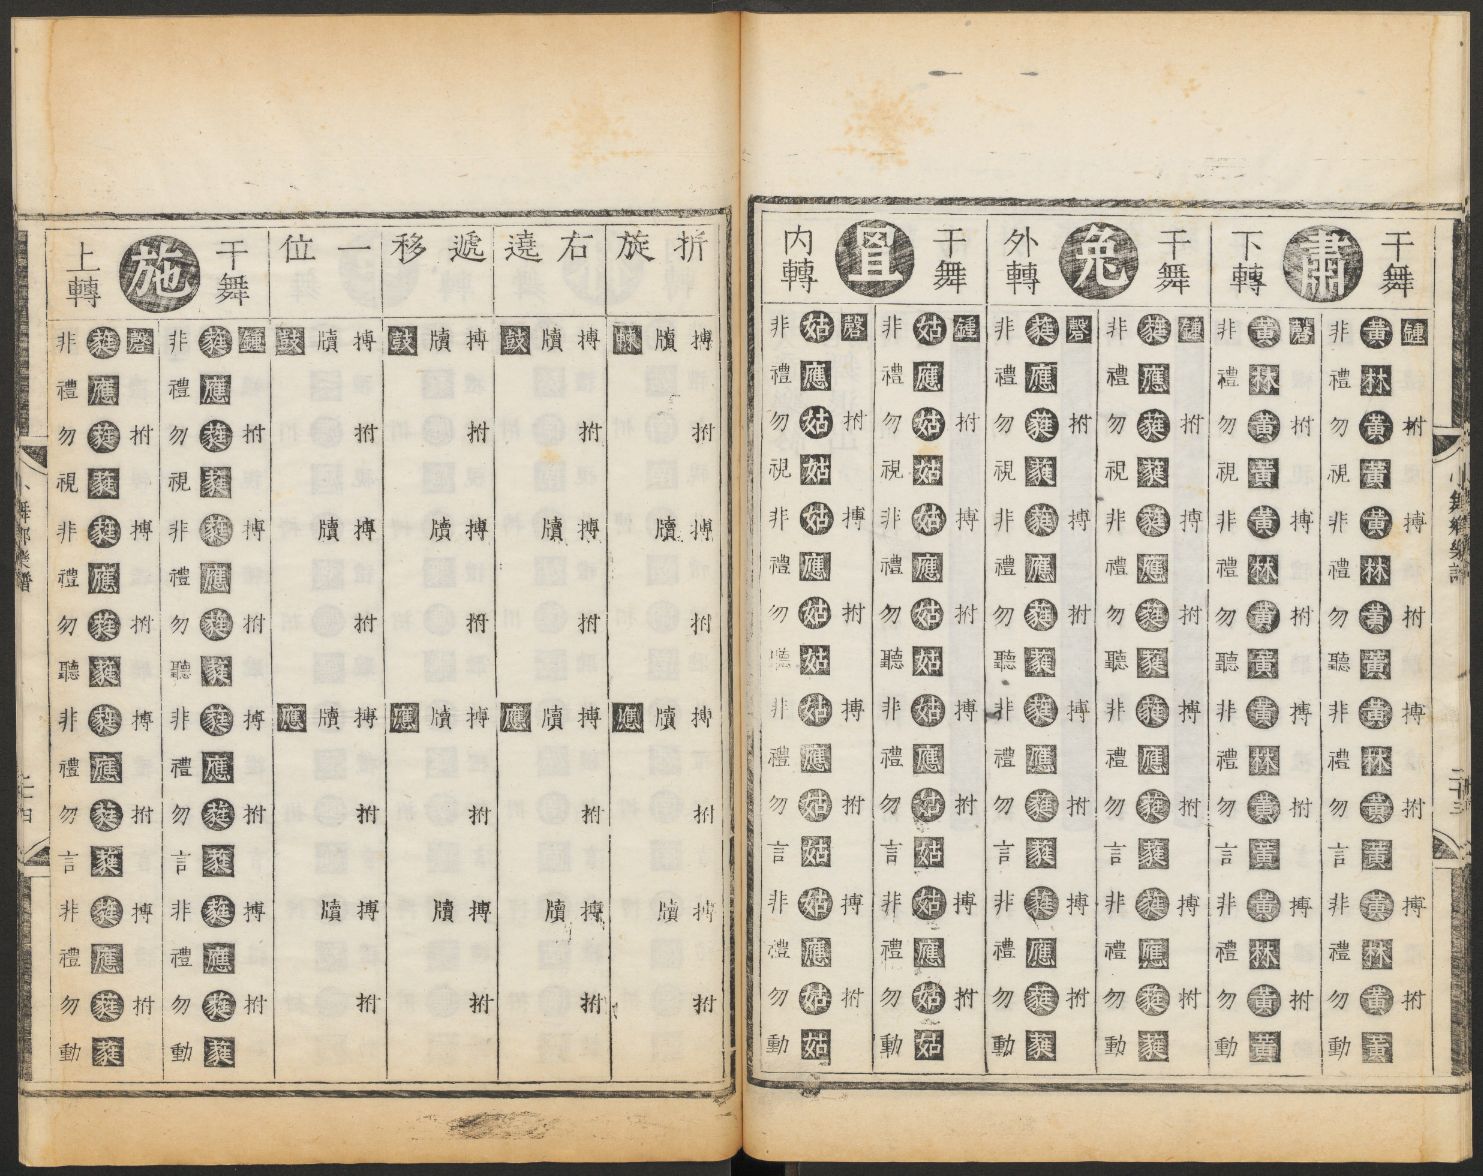 小舞鄉樂譜 二十三
干舞 肅 下轉
鍾拊搏拊搏拊搏拊
黃林黃黃黃林黃黃黃林黃黃黃林黃黃
非禮勿視非禮勿聽非禮勿言非禮勿動
磬拊搏拊搏拊搏拊
黃林黃黃黃林黃黃黃林黃黃黃林黃黃
非禮勿視非禮勿聽非禮勿言非禮勿動
干舞 兔 外轉
鍾拊搏拊搏拊搏拊
蕤應蕤蕤蕤應蕤蕤蕤應蕤蕤蕤應蕤蕤
非禮勿視非禮勿聽非禮勿言非禮勿動
磬拊搏拊搏拊搏拊
蕤應蕤蕤蕤應蕤蕤蕤應蕤蕤蕤應蕤蕤
非禮勿視非禮勿聽非禮勿言非禮勿動
干舞 罝 内轉
鍾拊搏拊搏拊搏拊
姑應姑姑姑應姑姑姑應姑姑姑應姑姑
非禮勿視非禮勿聽非禮勿言非禮勿動
磬拊搏拊搏拊搏拊
姑應姑姑姑應姑姑姑應姑姑姑應姑姑
非禮勿視非禮勿聽非禮勿言非禮勿動
折旋
搏拊搏拊搏拊搏拊
牘牘牘牘
應
右遶
搏拊搏拊搏拊搏拊
牘牘牘牘
鼓應
遞移
搏拊搏拊搏拊搏拊
牘牘牘牘
鼓應
一位
搏拊搏拊搏拊搏拊
牘牘牘牘
鼓應
干舞 施 上轉
鍾拊搏拊搏拊搏拊
蕤應蕤蕤蕤應蕤蕤蕤應蕤蕤蕤應蕤蕤
非禮勿視非禮勿聽非禮勿言非禮勿動
磬拊搏拊搏拊搏拊
蕤應蕤蕤蕤應蕤蕤蕤應蕤蕤蕤應蕤蕤
非禮勿視非禮勿聽非禮勿言非禮勿動
小舞鄉樂譜 二十四